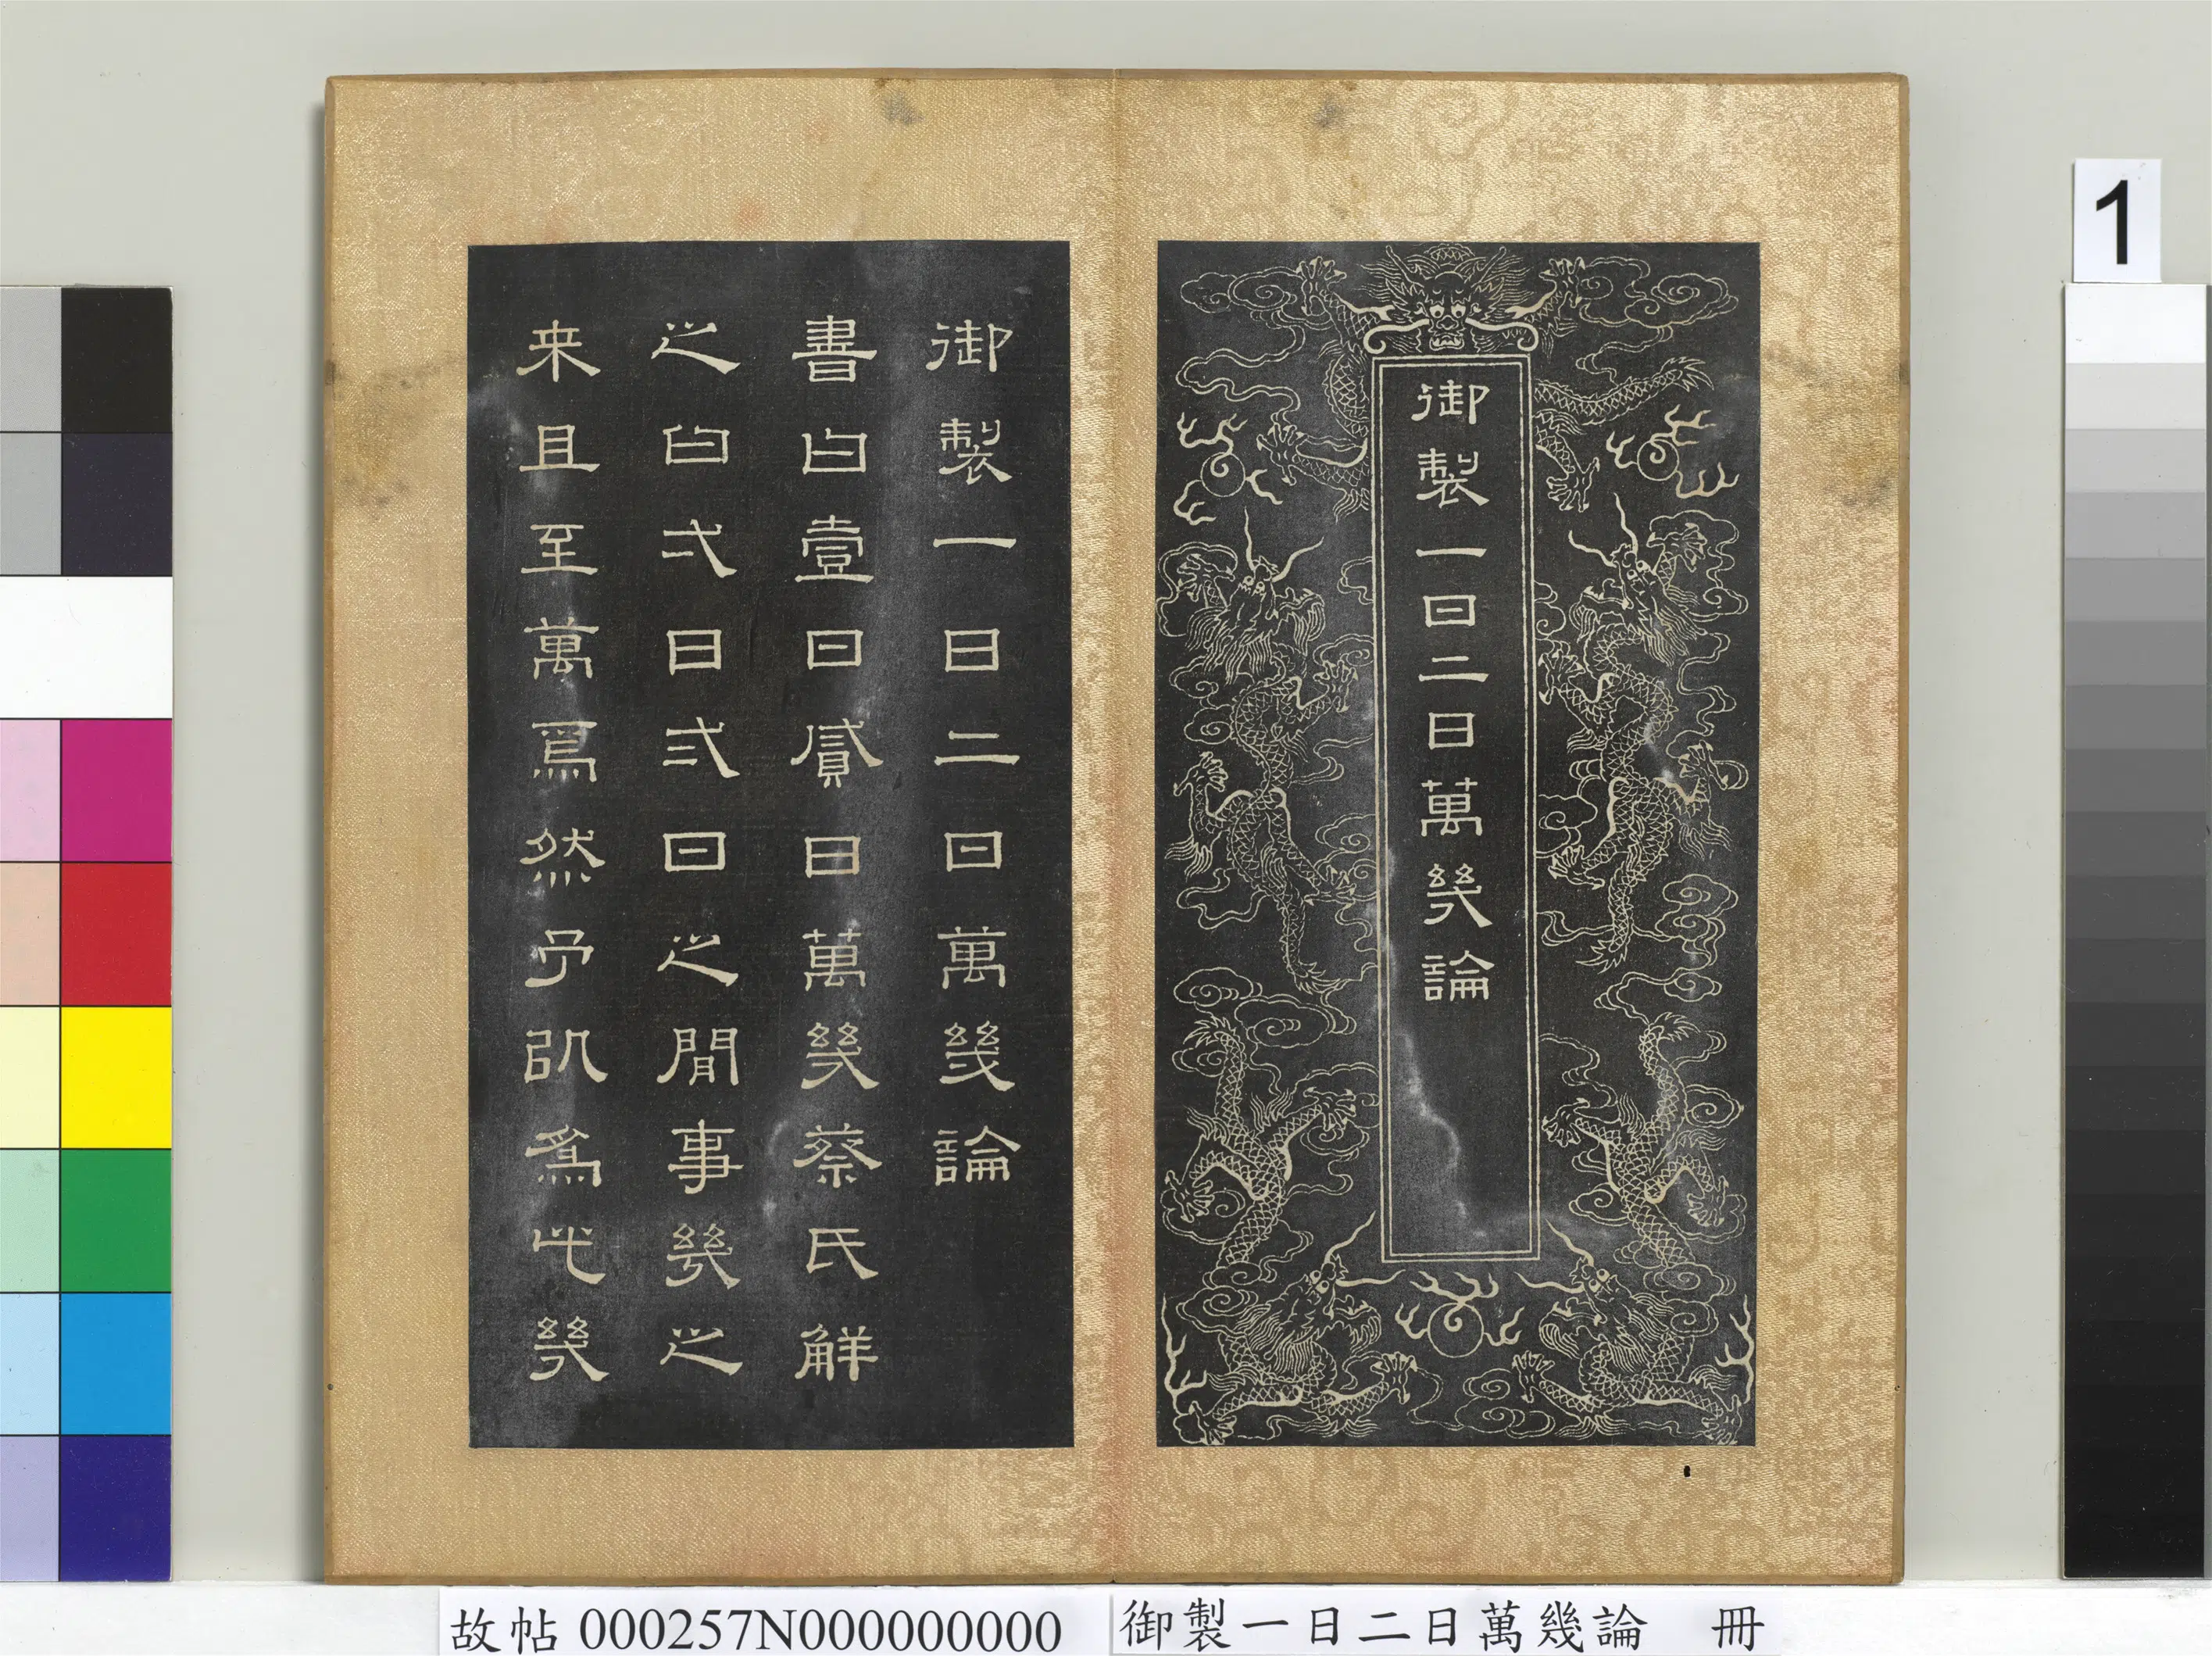 御製一日二日萬幾論
御製一日二日萬幾論
書曰壹日貳日萬幾蔡氏解
之曰弌日弍日之間事幾之
来且至萬焉然予以為此幾
1
故帖 000257N000000000
御製一日二日萬幾論 冊